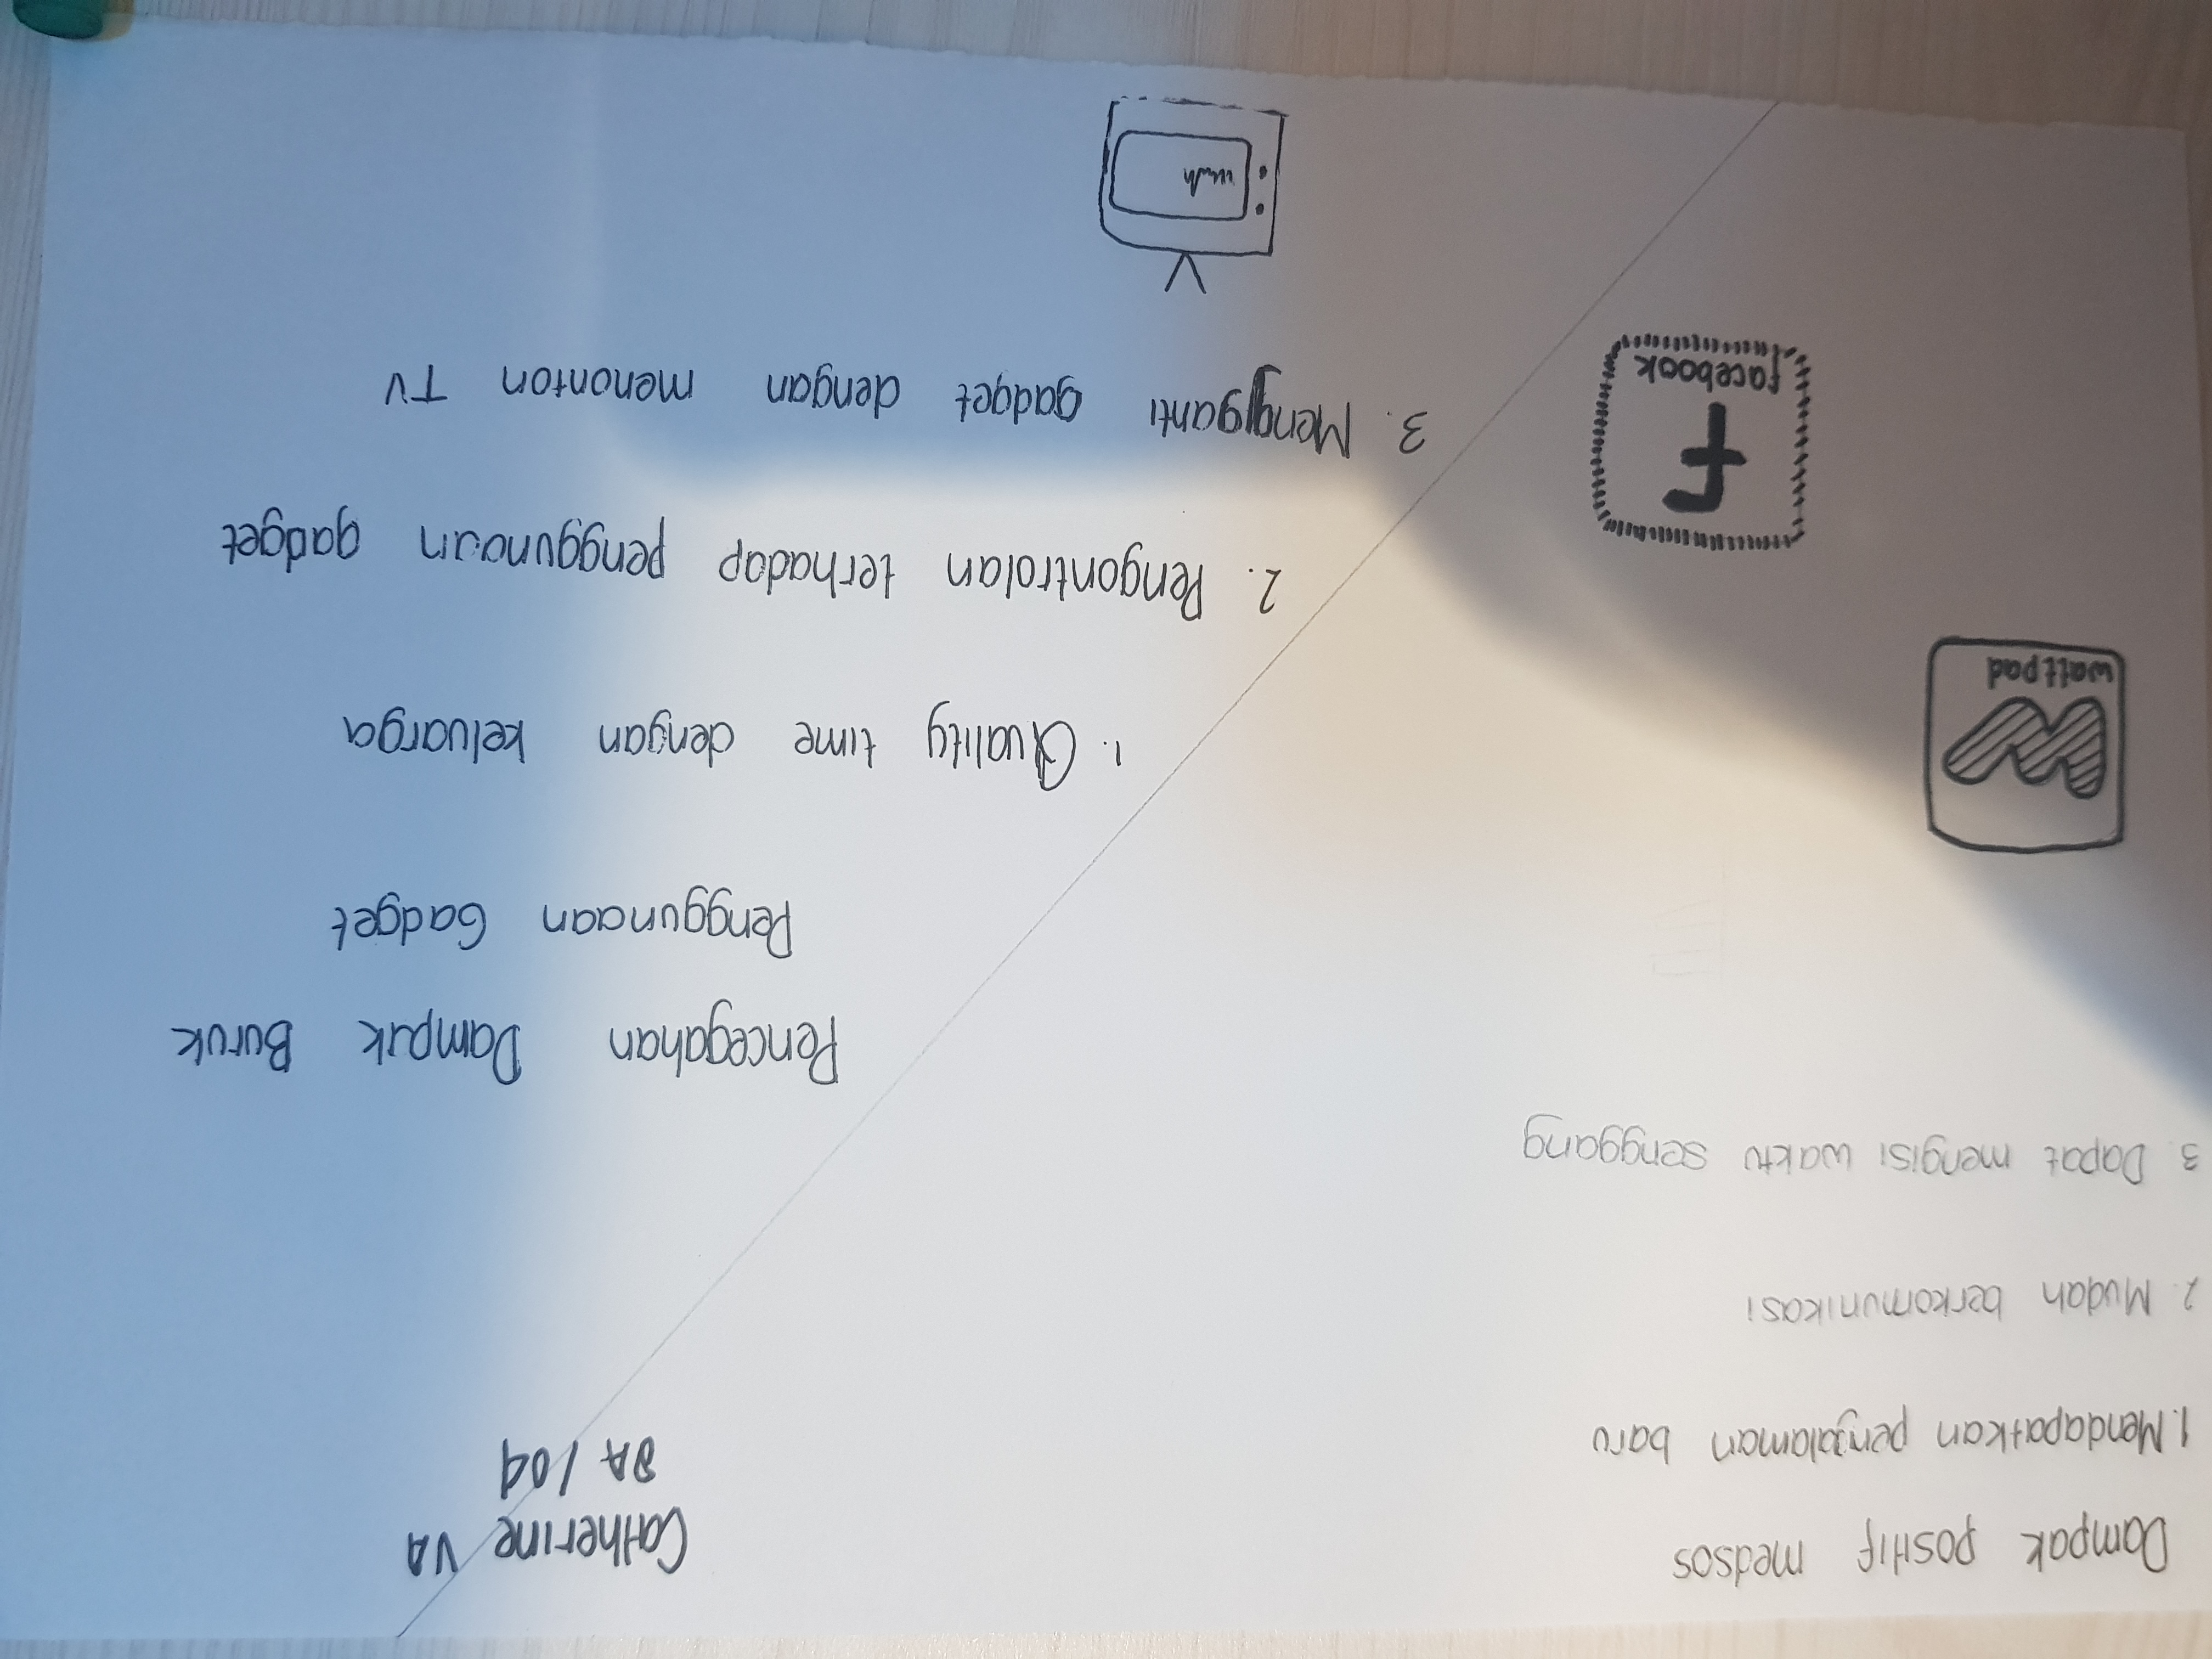 Dampak positif medsos
1. Mendapatkan pengalaman baru
2. Mudah berkomunikasi
3. Dapat mengisi waktu senggang
wattpad
F
facebook
Catherine VA
8A / 09
Pencegahan Dampak Buruk
Penggunaan Gadget
1. Quality time dengan keluarga
2. Pengontrolan terhadap penggunaan gadget
3. Mengganti gadget dengan menonton TV